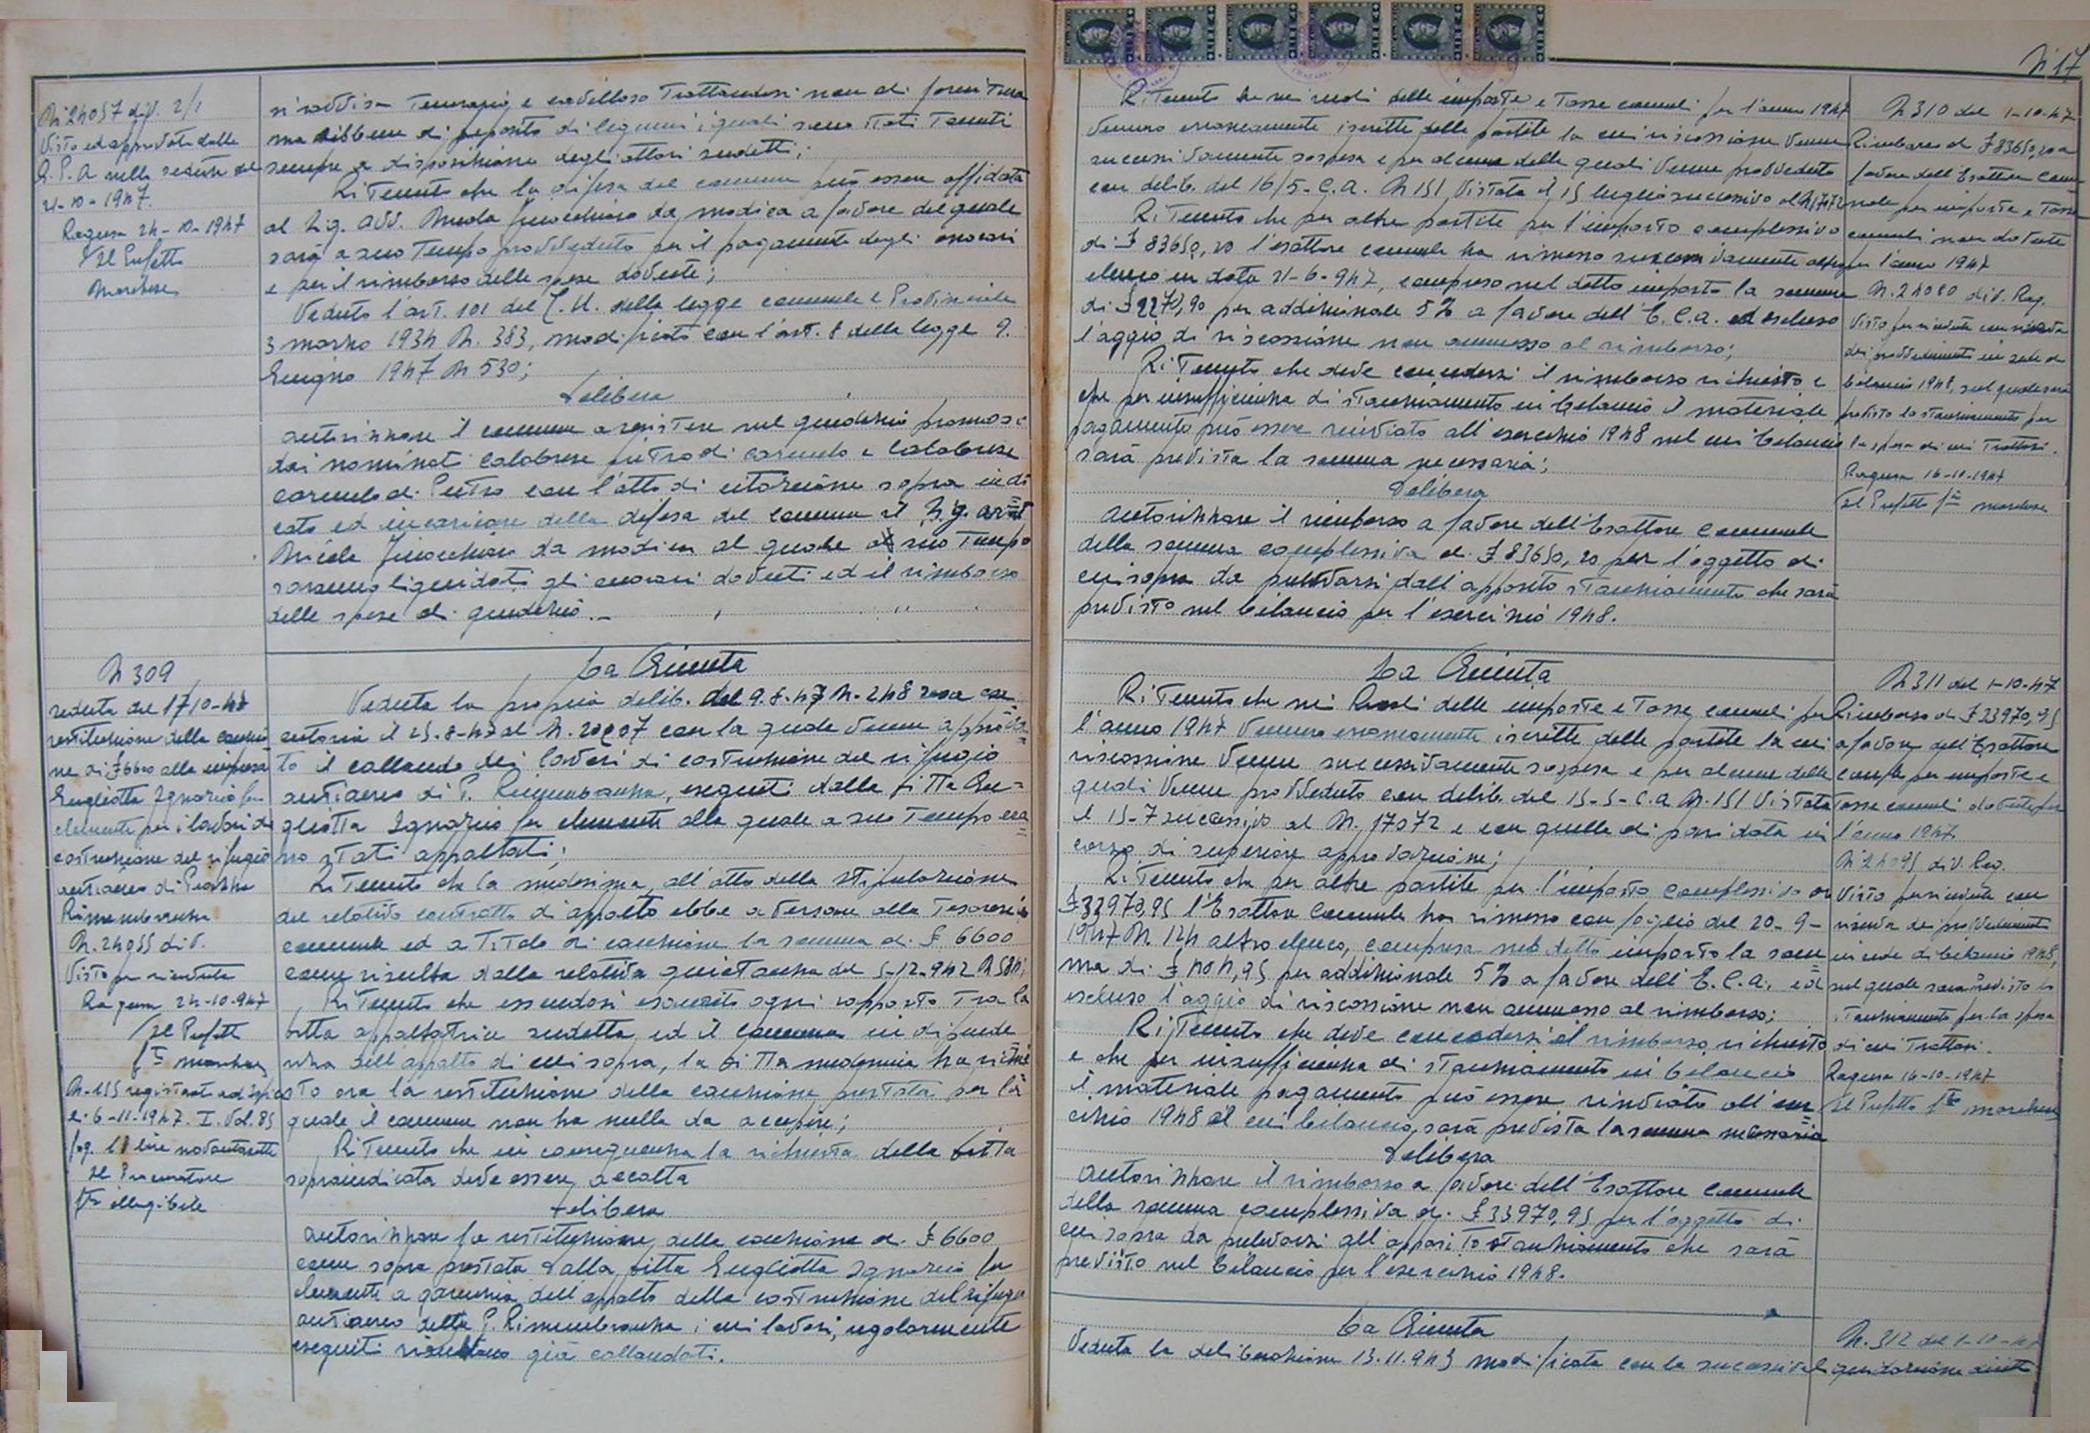 N 24057 div. 2/1
Visto ed approvato dalla
G. P. A. nella seduta del
21-10-1947.
Ragusa 24-10-1947
Il Prefetto
Marchese
si ravvisa temerario e cavilloso trattandosi non di fornitura
ma sibbene di deposito di legnami, i quali sono stati tenuti
sempre a disposizione degli attori sudetti;
Ritenuto che la difesa del comune può essere affidata
al Sig. Avv. da Modica a favore del quale
sarà a suo tempo provveduto per il pagamento degli onorari
e per il rimborso delle spese dovute;
Veduto l'art. 101 del T. U. della legge comunale e Provinciale
3 marzo 1934 N. 383, modificato con l'art. 8 della legge 9.
Giugno 1947 N 530;
Delibera
autorizzare il comune a resistere nel giudizio promosso
dai nominati Calabrese Pietro di Carmelo e Calabrese
Carmelo di Pietro con l'atto di citazione sopra indi
cato ed incaricare della difesa del comune il Sig. avv.
da Modica al quale a suo tempo
saranno liquidati gli onorari dovuti ed il rimborso
delle spese di giudizio. –
N 309
seduta del 1/10-47
restituzione della cauzio
ne di £ 6600 alla impresa
Gugliotta Ignazio fu
Clemente per i lavori di
costruzione del rifugio
antiaereo di Piazza
Rimembranza
N. 24055 div.
Visto per ricevuta
Ragusa 24-10-947
Il Prefetto
fto Marchese
N. 155 registrato ad Ispica
li 6-11-1947. I. Vol. 85
fog. 11 lire novantasette
Il Procuratore
fto illegibile
La Giunta
Veduta la propria delib. del 9.8.47 N. 248 resa ese
cutoria il 25-8-47 al N. 20007 con la quale venne approva=
to il collaudo dei lavori di costruzione del rifugio
antiaereo di P. Rimembranza, eseguiti dalla Ditta Gu=
gliotta Ignazio fu Clemente alla quale a suo tempo era=
no stati appaltati;
Ritenuto che la medesima, all'atto della stipulazione
del relativo contratto di appalto ebbe a versare alla Tesoreria
comunale ed a titolo di cauzione la somma di £ 6600
come risulta dalla relativa quietanza del 5-12-942 N 584;
Ritenuto che essendosi esaurito ogni rapporto tra la
Ditta appaltatrice sudetta ed il comune in dipende
nza dell'appalto di cui sopra, la Ditta medesima ha richie
sto ora la restituzione della cauzione prestata per la
quale il comune non ha nulla da eccepire;
Ritenuto che in conseguenza la richiesta della Ditta
sopraindicata deve essere accolta
Delibera
autorizzare la restituzione della cauzione di £ 6600
come sopra prestata dalla Ditta Gugliotta Ignazio fu
Clemente a garanzia dell'appalto della costruzione del rifugio
antiaereo della P. Rimembranza i cui lavori, regolarmente
eseguiti risultano già collaudati.
N 17
Ritenuto che nei ruoli delle imposte e tasse comunali per l'anno 1947
vennero erroneamente iscritte delle partite la cui riscossione venne
successivamente sospesa e per alcune delle quali venne provveduto
con delib. del 16/5- C.A. N 151 vistata il 15 luglio successivo al N 17072
Ritenuto che per altre partite per l'importo complessivo
di £ 83650,20 l'esattore comunale ha rimesso successivamente altro
elenco in data 21-6-947, compreso nel detto importo la somma
di £ 2270,90 per addizionale 5% a favore dell'E.C.A. ed escluso
l'aggio di riscossione non ammesso al rimborso;
Ritenuto che deve concedersi il rimborso richiesto e
che per insufficienza di stanziamento in bilancio il materiale
pagamento può essere rinviato all'esercizio 1948 nel cui bilancio
sarà prevista la somma necessaria;
Delibera
autorizzare il rimborso a favore dell'Esattore Comunale
della somma complessiva di £ 83650,20 per l'oggetto di
cui sopra da prelevarsi dall'apposito stanziamento che sarà
previsto nel bilancio per l'esercizio 1948.
N 310 del 1-10-47
Rimborso di £ 83650,20 a
favore dell'Esattore Comu
nale per imposte e tasse
comunali non dovute
per l'anno 1947
N. 24080 div. Rag.
Visto per ricevuta con riserva
dei provvedimenti in sede di
bilancio 1948, nel quale sarà
previsto lo stanziamento per
la spesa di cui trattasi.
Ragusa 16-10-1947
Il Prefetto fto Marchese
La Giunta
Ritenuto che nei Ruoli delle imposte e tasse comunali per
l'anno 1947 vennero erroneamente iscritte delle partite la cui
riscossione venne successivamente sospesa e per alcune delle
quali venne provveduto con delib. del 15-5-C.A N. 151 vistata
il 15-7 successivo al N. 17072 e con quella di pari data in
corso di superiore approvazione;
Ritenuto che per altre partite per l'importo complessivo di
£ 33970,95 l'Esattore Comunale ha rimesso con foglio del 20-9-
1947 N. 124 altro elenco, compresa nel detto importo la som
ma di £ 404,95 per addizionale 5% a favore dell'E.C.A. ed
escluso l'aggio di riscossione non ammesso al rimborso;
Ritenuto che deve concedersi il rimborso richiesto
e che per insufficienza di stanziamento in bilancio
il materiale pagamento può essere rinviato all'eser
cizio 1948 al cui bilancio, sarà prevista la somma necessaria
Delibera
autorizzare il rimborso a favore dell'Esattore Comunale
della somma complessiva di £ 33970,95 per l'oggetto di
cui sopra da prelevarsi all'apposito stanziamento che sarà
previsto nel bilancio per l'esercizio 1948.
N 311 del 1-10-47
Rimborso di £ 33970,95
a favore dell'Esattore
com/le per imposte e
tasse comunali dovute per
l'anno 1947
N 24095 div. Rag.
Visto per ricevuta con
riserva dei provvedimenti
in sede di bilancio 1948,
nel quale sarà previsto lo
stanziamento per la spesa
di cui trattasi.
Ragusa 16-10-1947
Il Prefetto fto Marchese
La Giunta
Veduta la deliberazione 13.11.943 modificata con la successiva
N. 312 del 1-10-47